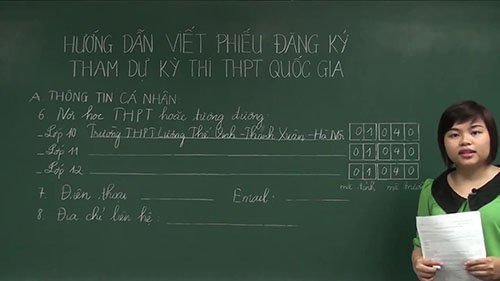 HƯỚNG DẪN VIẾT PHIẾU ĐĂNG KÝ
THAM DỰ KỲ THI THPT QUỐC GIA
A. THÔNG TIN CÁ NHÂN:
6. Nơi học THPT hoặc tương đương:
- Lớp 10 Trường THPT Lương Thế Vinh - Thanh Xuân - Hà Nội 0 1 0 4 0
- Lớp 11 0 1 0 4 0
- Lớp 12 0 1 0 4 0
mã tỉnh mã trường
7. Điện thoại: Email:
8. Địa chỉ liên hệ: